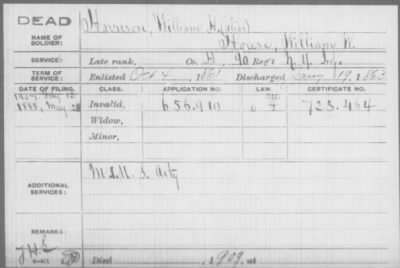 DEAD
NAME OF SOLDIER: Harrison, William H. (alias)
House, William W.
SERVICE: Late rank, Co. H, 90 Reg't N.Y. Inf.
TERM OF SERVICE: Enlisted Oct 4, 1861 Discharged Jany 19, 1863
DATE OF FILING. CLASS. APPLICATION NO. LAW. CERTIFICATE NO.
1888, May Invalid, 656.910 723.464
Widow,
Minor,
ADDITIONAL SERVICES: M
REMARKS:
Died , 1909, at